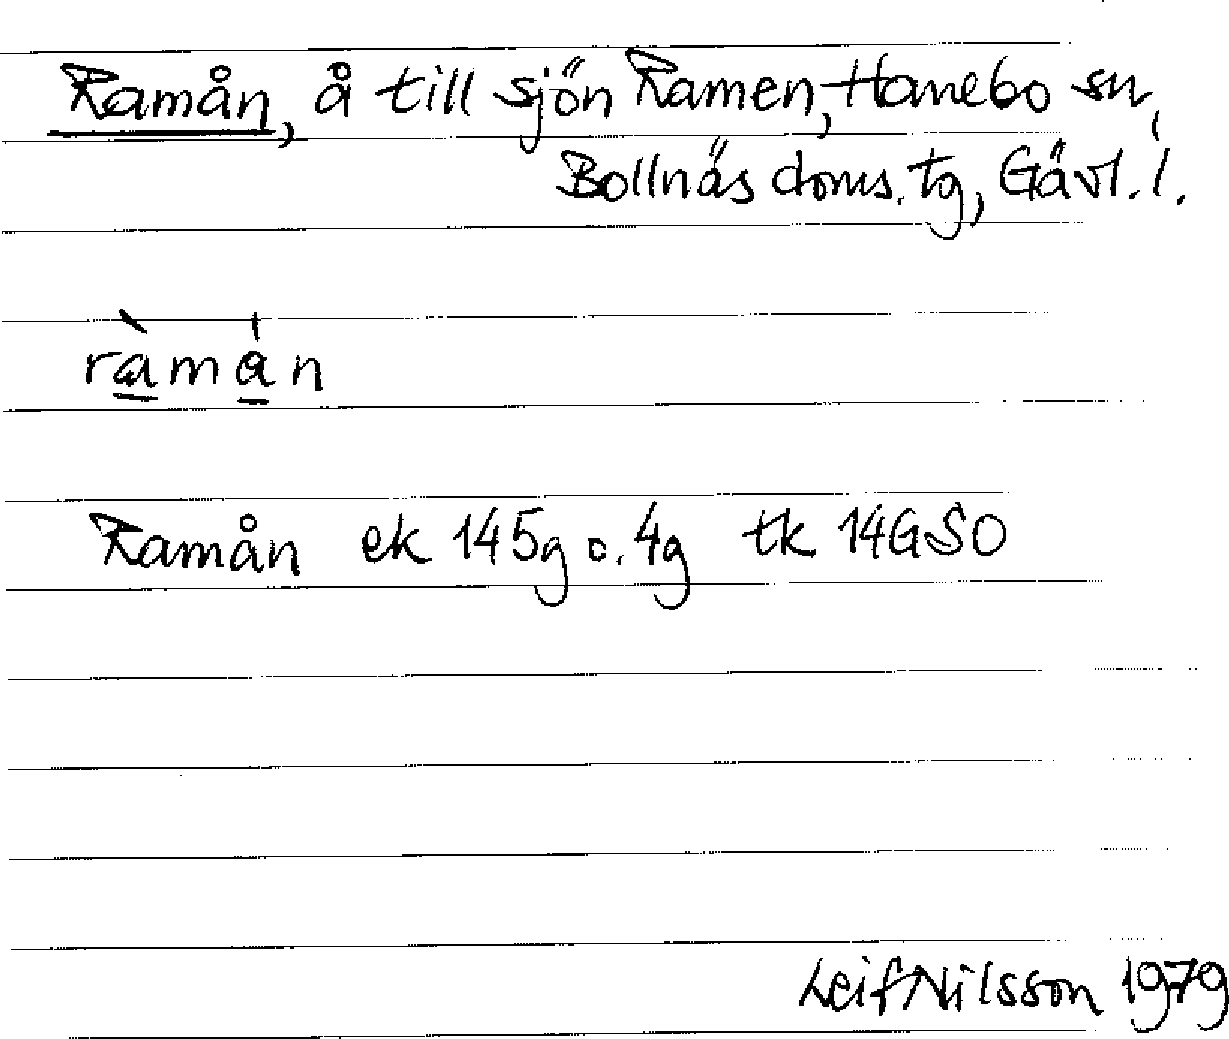 Ramån, å till sjön Ramen, Hanebo sn,
Bollnäs doms. tg, Gävl. l.
ràmán
Ramån ek 145g o. 4g tk 14GSO
Leif Nilsson 1979